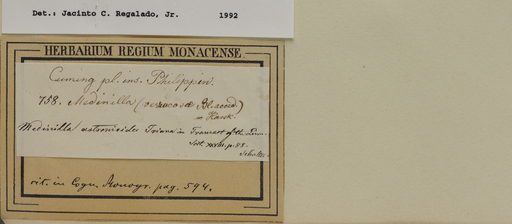 Det.: Jacinto C. Regalado, Jr. 1992
HERBARIUM REGIUM MONACENSE.
Cuming pl. ins. Philippin.
758. Medinilla (
Medinilla astronioides Triana in Transact of the Linn.
Soc. XXVIII. p. 88.
cit. in Cogn. Monogr. pag. 594.